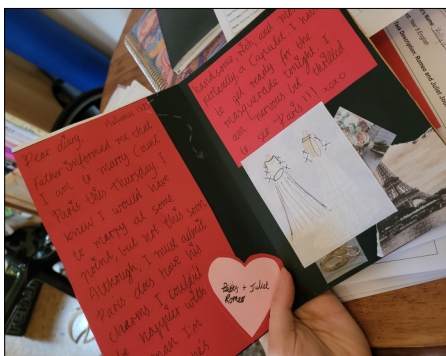 Dear diary,
Father informed me that
I am to marry Count
Paris this Thursday I
knew I would have
to marry at some
point, but not this soon
Although, I must admit
Paris does have his
charms I couldn't
be happier with
man I'm
handsome, rich, and
a Capulet I have
to get ready for the
masquerade tonight I
am nervous but thrilled
to see Paris!!! xoxo
+ Juliet
Romeo
Text Description: Romeo and Juliet